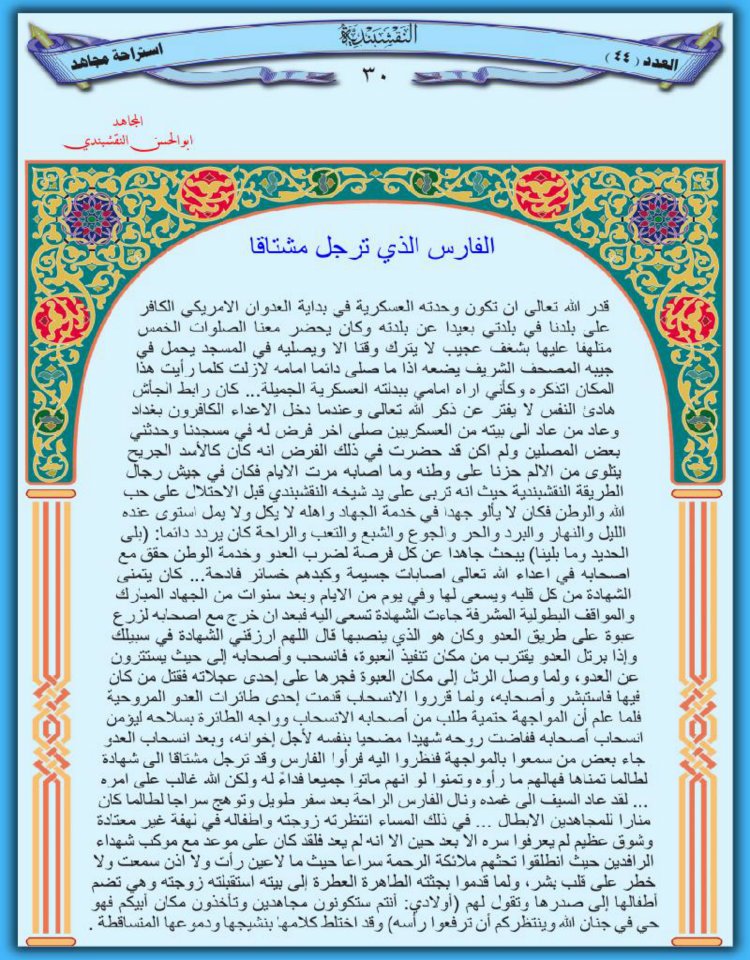 النقشبندية
العدد ( ٤٤ )
استراحة مجاهد
٣٠
المجاهد
ابوالحسن النقشبندي
الفارس الذي ترجل مشتاقا
قدر الله تعالى ان تكون وحدته العسكرية في بداية العدوان الامريكي الكافر
على بلدنا في بلدتي بعيدا عن بلدته وكان يحضر معنا الصلوات الخمس
متلهفا عليها بشغف عجيب لا يترك وقتا الا ويصليه في المسجد يحمل في
جيبه المصحف الشريف يضعه اذا ما صلى دائما امامه لازلت كلما رأيت هذا
المكان اتذكره وكأني اراه امامي ببدلته العسكرية الجميلة... كان رابط الجأش
هادئ النفس لا يفتر عن ذكر الله تعالى وعندما دخل الاعداء الكافرون بغداد
وعاد من عاد الى بيته من العسكريين صلى اخر فرض له في مسجدنا وحدثني
بعض المصلين ولم اكن قد حضرت في ذلك الفرض انه كان كالأسد الجريح
يتلوى من الالم حزنا على وطنه وما اصابه مرت الايام فكان في جيش رجال
الطريقة النقشبندية حيث انه تربى على يد شيخه النقشبندي قبل الاحتلال على حب
الله والوطن فكان لا يألو جهدا في خدمة الجهاد واهله لا يكل ولا يمل استوى عنده
الليل والنهار والبرد والحر والجوع والشبع والتعب والراحة كان يردد دائما: (بلى
الحديد وما بلينا) يبحث جاهدا عن كل فرصة لضرب العدو وخدمة الوطن حقق مع
اصحابه في اعداء الله تعالى اصابات جسيمة وكبدهم خسائر فادحة... كان يتمنى
الشهادة من كل قلبه ويسعى لها وفي يوم من الايام وبعد سنوات من الجهاد المبارك
والمواقف البطولية المشرفة جاءت الشهادة تسعى اليه فبعد ان خرج مع اصحابه لزرع
عبوة على طريق العدو وكان هو الذي ينصبها قال اللهم ارزقني الشهادة في سبيلك
وإذا برتل العدو يقترب من مكان تنفيذ العبوة، فانسحب وأصحابه إلى حيث يستترون
عن العدو، ولما وصل الرتل إلى مكان العبوة فجرها على إحدى عجلاته فقتل من كان
فيها فاستبشر وأصحابه، ولما قرروا الانسحاب قدمت إحدى طائرات العدو المروحية
فلما علم أن المواجهة حتمية طلب من أصحابه الانسحاب وواجه الطائرة بسلاحه ليؤمن
انسحاب أصحابه ففاضت روحه شهيدا مضحيا بنفسه لأجل إخوانه، وبعد انسحاب العدو
جاء بعض من سمعوا بالمواجهة فنظروا اليه فرأوا الفارس وقد ترجل مشتاقا الى شهادة
لطالما تمناها فهالهم ما رأوه وتمنوا لو انهم ماتوا جميعا فداءً له ولكن الله غالب على امره
... لقد عاد السيف الى غمده ونال الفارس الراحة بعد سفر طويل وتوهج سراجا لطالما كان
منارا للمجاهدين الابطال ... في ذلك المساء انتظرته زوجته واطفاله في لهفة غير معتادة
وشوق عظيم لم يعرفوا سره الا بعد حين الا انه لم يعد فلقد كان على موعد مع موكب شهداء
الرافدين حيث انطلقوا تحثهم ملائكة الرحمة سراعا حيث ما لاعين رأت ولا اذن سمعت ولا
خطر على قلب بشر، ولما قدموا بجثته الطاهرة العطرة إلى بيته استقبلته زوجته وهي تضم
أطفالها إلى صدرها وتقول لهم (أولادي: أنتم ستكونون مجاهدين وتأخذون مكان أبيكم فهو
حي في جنان الله وينتظركم أن ترفعوا رأسه) وقد اختلط كلامها بنشيجها ودموعها المتساقطة .